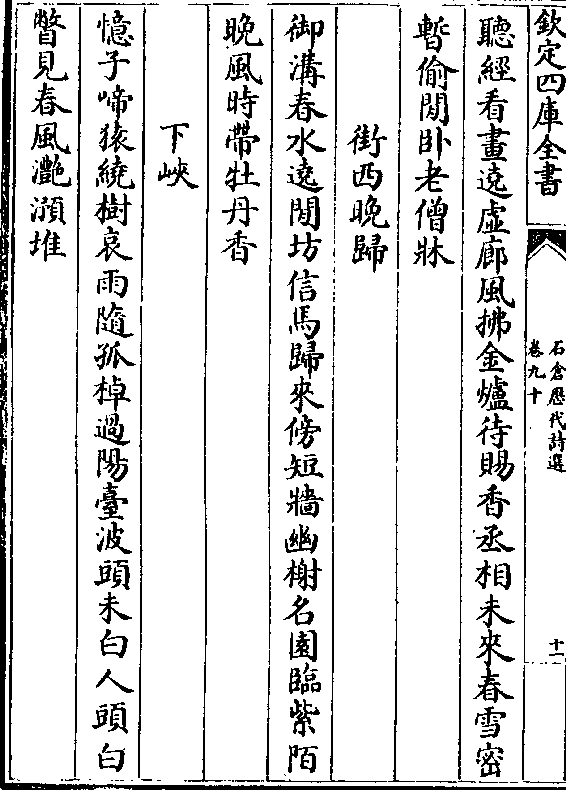 欽定四庫全書
石倉歷代詩選
卷九十
十一
聽經看畫遶虛廊風拂金爐待賜香丞相未來春雪密
暫偷閒卧老僧牀
街西晚歸
御溝春水遶閒坊信馬歸來傍短牆幽榭名園臨紫陌
晚風時帶牡丹香
下峽
憶子啼猿繞樹哀雨隨孤棹過陽臺波頭未白人頭白
瞥見春風灔澦堆